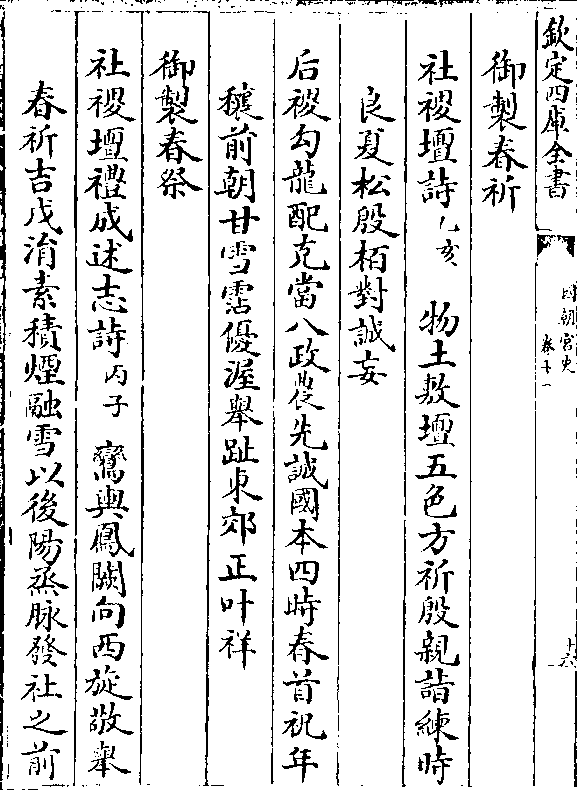 欽定四庫全書
國朝宮史
卷十一
十六
御製春祈
社稷壇詩乙亥 物土敷壇五色方祈殷親詣練時
良夏松殷栢對誠妄
后稷勾龍配克當八政農先誠國本四時春首祝年
穰前朝甘雪霑優渥舉趾東郊正叶祥
御製春祭
社稷壇禮成述志詩丙子 鸞輿鳳闕向西旋敬舉
春祈吉戊涓素積煙融雪以後陽蒸脉發社之前